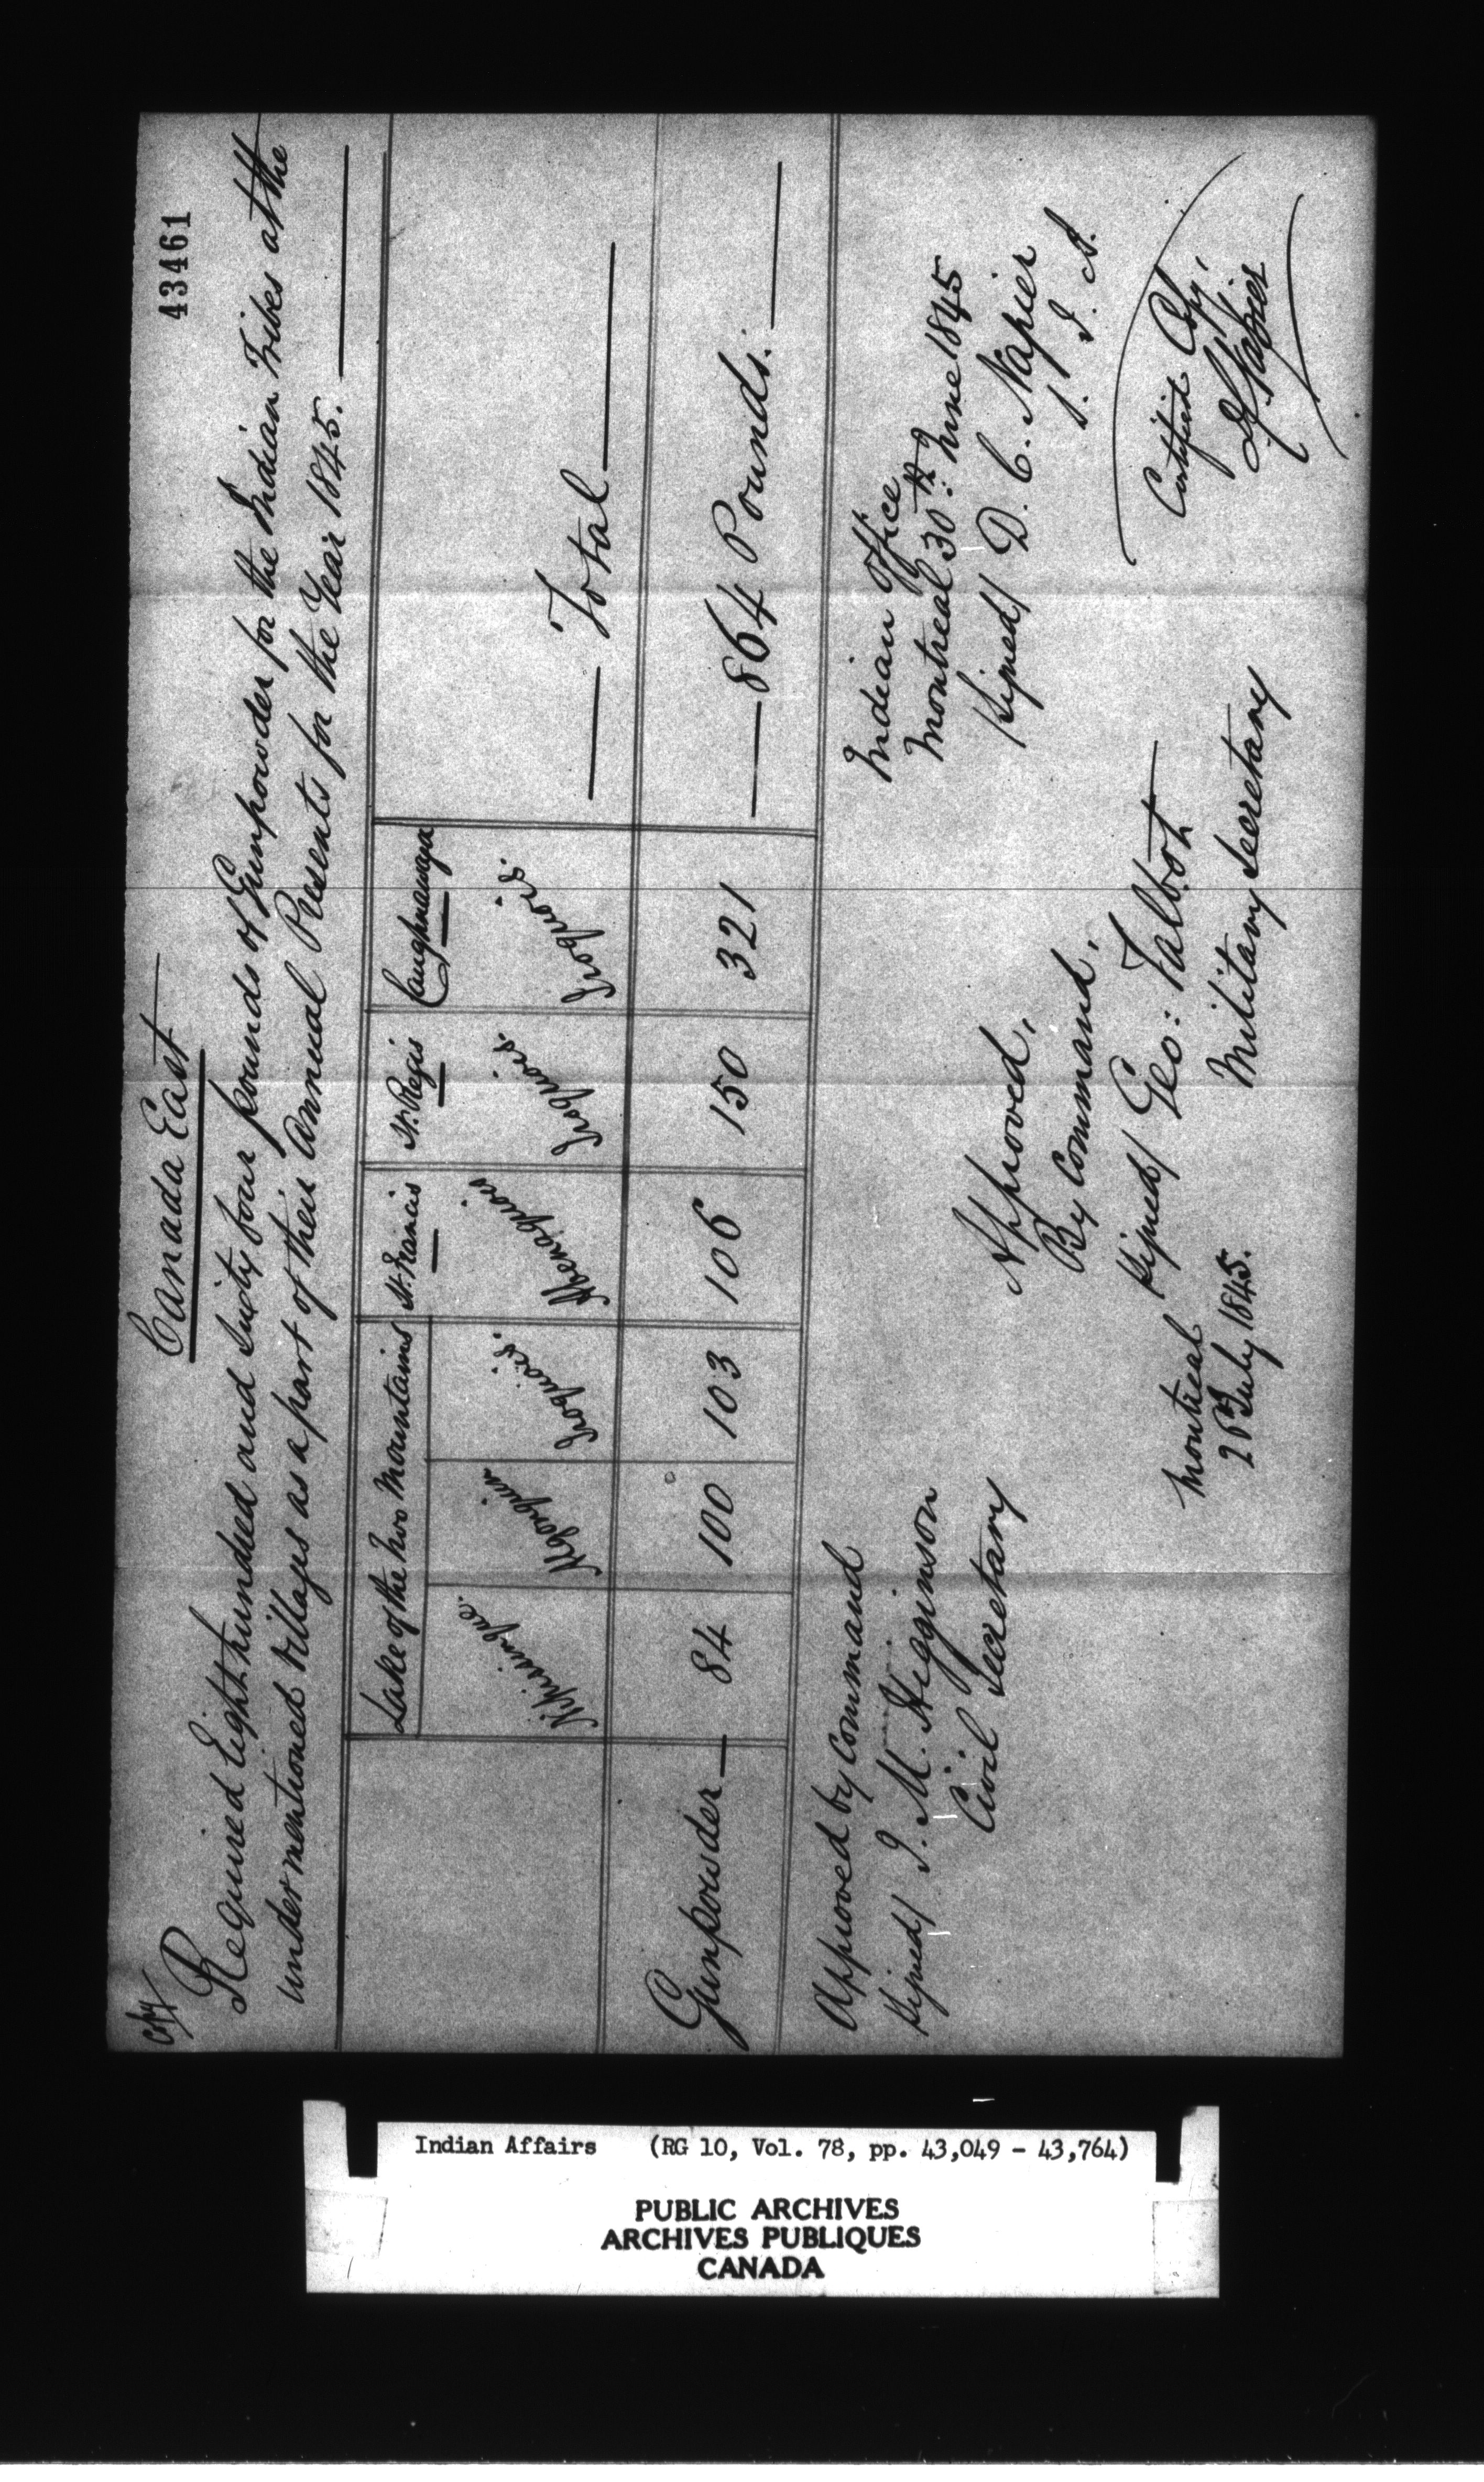 Copy/
43461
Canada East
Required Eight hundred and Sixty four pounds of Gunpowder for the Indian Tribes at the
undermentioned Villages as a part of their Annual Presents for the Year 1845.
Lake of the two Mountains St. Francis St. Regis Caughnawaga
Nipissingue. Algonquin Iroquois. Abenaquois Iroquois. Iroquois. Total
Gunpowder 84 100 103 106 150 321 864 Pounds.
Approved by Command
Signed/ J. M. Higginson
Civil Secretary
Indian Office
Montreal 30th June 1845
/Signed/ D. C. Napier
S. I. A.
Approved,
By Command,
Signed/ Geo: Talbot
Military Secretary
Montreal
2d July 1845.
Certified Copy,
DCNapier
Indian Affairs (RG 10, Vol. 78, pp. 43,049 - 43,764)
PUBLIC ARCHIVES
ARCHIVES PUBLIQUES
CANADA